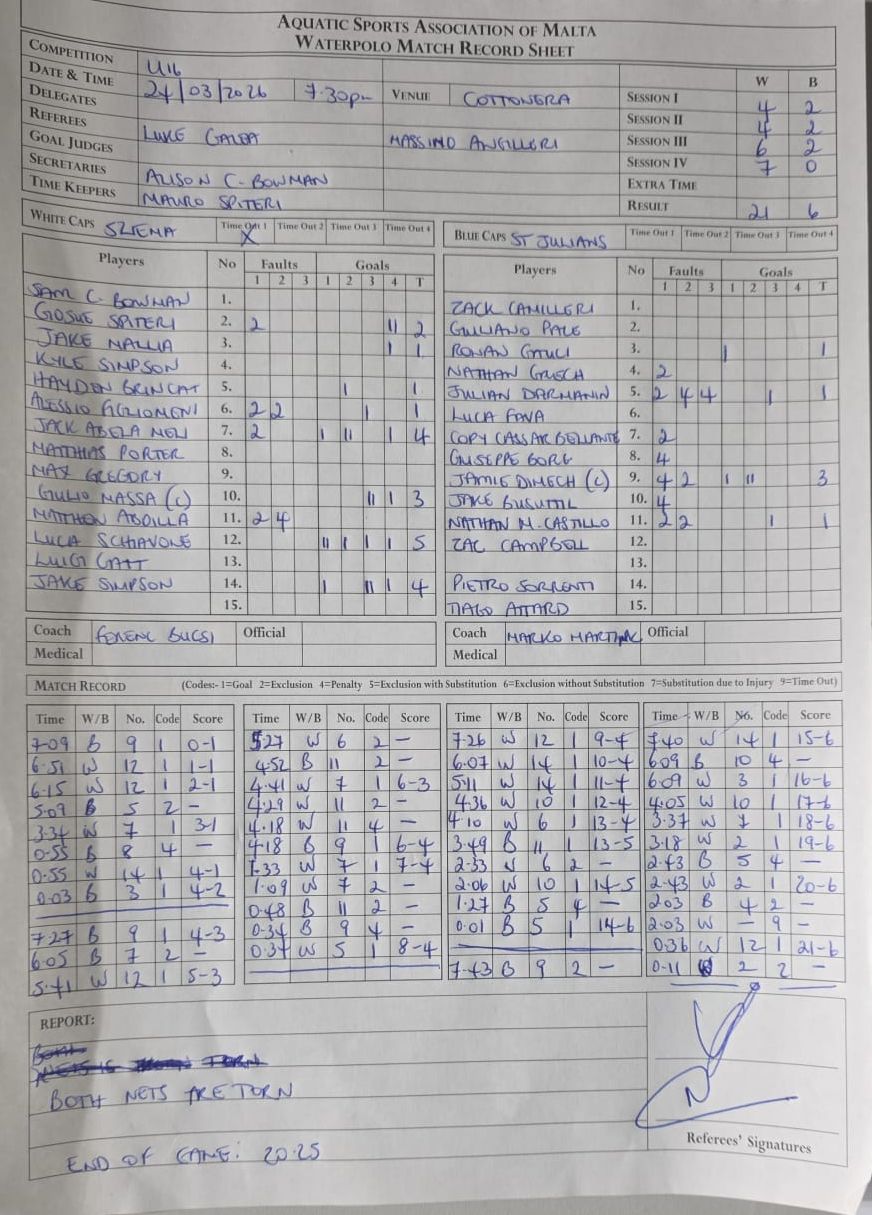 AQUATIC SPORTS ASSOCIATION OF MALTA
WATERPOLO MATCH RECORD SHEET
COMPETITION U16 W B
DATE & TIME 24/03/2026 7.30pm VENUE COTTONERA SESSION I 4 2
DELEGATES SESSION II 4 2
REFEREES LUKE GALEA MASSIMO ANGILLERI SESSION III 6 2
GOAL JUDGES SESSION IV 7 0
SECRETARIES ALISON C-BOWMAN EXTRA TIME
TIME KEEPERS MAURO SPITERI RESULT 21 6
WHITE CAPS SLIEMA Time Out 1 X Time Out 2 Time Out 3 Time Out 4
Players No Faults Goals
1 2 3 1 2 3 4 T
SAM C. BOWMAN 1.
GOSUE SPITERI 2. 2 II 2
JAKE MALLIA 3. I 1
KYLE SIMPSON 4.
HAYDEN GRINCAT 5. I 1
ALESSIO 6. 2 2 I 1
JACK ABELA MEL 7. 2 I II I 4
MATTHIAS PORTER 8.
MAX GREGORY 9.
GIULIO MASSA (c) 10. II I 3
MATTHEW ABDILLA 11. 2 4
LUCA SCHIAVONE 12. II I I I 5
LUIGI GATT 13.
JAKE SIMPSON 14. I II I 4
15.
Coach FERENC BUCSI Official
Medical
BLUE CAPS ST JULIANS Time Out 1 Time Out 2 Time Out 3 Time Out 4
Players No Faults Goals
1 2 3 1 2 3 4 T
ZACK CAMILLERI 1.
GIULIANO PACE 2.
RONAN GAUCI 3. I 1
NATHAN GRECH 4. 2
JULIAN DARMANIN 5. 2 4 4 I 1
LUCA FAVA 6.
COPY CASSAR BELLANTE 7. 2
GIUSEPPE BORG 8. 4
JAMIE DIMECH (c) 9. 4 2 I II 3
JAKE BUSUTTIL 10. 4
NATHAN M. CASTILLO 11. 2 2 I 1
ZAC CAMPBELL 12.
13.
PIETRO SORRENTI 14.
TIAGO ATTARD 15.
Coach MARKO Official
Medical
MATCH RECORD (Codes:- 1=Goal 2=Exclusion 4=Penalty 5=Exclusion with Substitution 6=Exclusion without Substitution 7=Substitution due to Injury 9=Time Out)
Time W/B No. Code Score
7-09 B 9 1 0-1
6.51 W 12 1 1-1
6.15 W 12 1 2-1
5.09 B 5 2 -
3.34 W 7 1 3-1
0.55 B 8 4 -
0.55 W 14 1 4-1
0.03 B 3 1 4-2
7.27 B 9 1 4-3
6.05 B 7 2 -
5.41 W 12 1 5-3
Time W/B No. Code Score
5.27 W 6 2 -
4.52 B 11 2 -
4.41 W 7 1 6-3
4.29 W 11 2 -
4.18 W 11 4 -
4.18 B 9 1 6-4
1.33 W 7 1 7-4
1.09 W 7 2 -
0.48 B 11 2 -
0.34 B 9 4 -
0.37 W 5 1 8-4
Time W/B No. Code Score
7.26 W 12 1 9-4
6.07 W 14 1 10-4
5.11 W 14 1 11-4
4.36 W 10 1 12-4
4.10 W 6 1 13-4
3.49 B 11 1 13-5
2.33 W 6 2 -
2.06 W 10 1 14-5
1.27 B 5 4 -
0.01 B 5 1 14-6
7.43 B 9 2 -
Time W/B No. Code Score
7.40 W 14 1 15-6
6.09 B 10 4 -
6.09 W 3 1 16-6
4.05 W 10 1 17-6
3.37 W 7 1 18-6
3.18 W 2 1 19-6
2.43 B 5 4 -
2.43 W 2 1 20-6
2.03 B 4 2 -
2.03 W - 9 -
0.36 W 12 1 21-6
0.11 W 2 2 -
REPORT:
BOTH NETS ARE TORN
END OF GAME: 20.25
Referees' Signatures